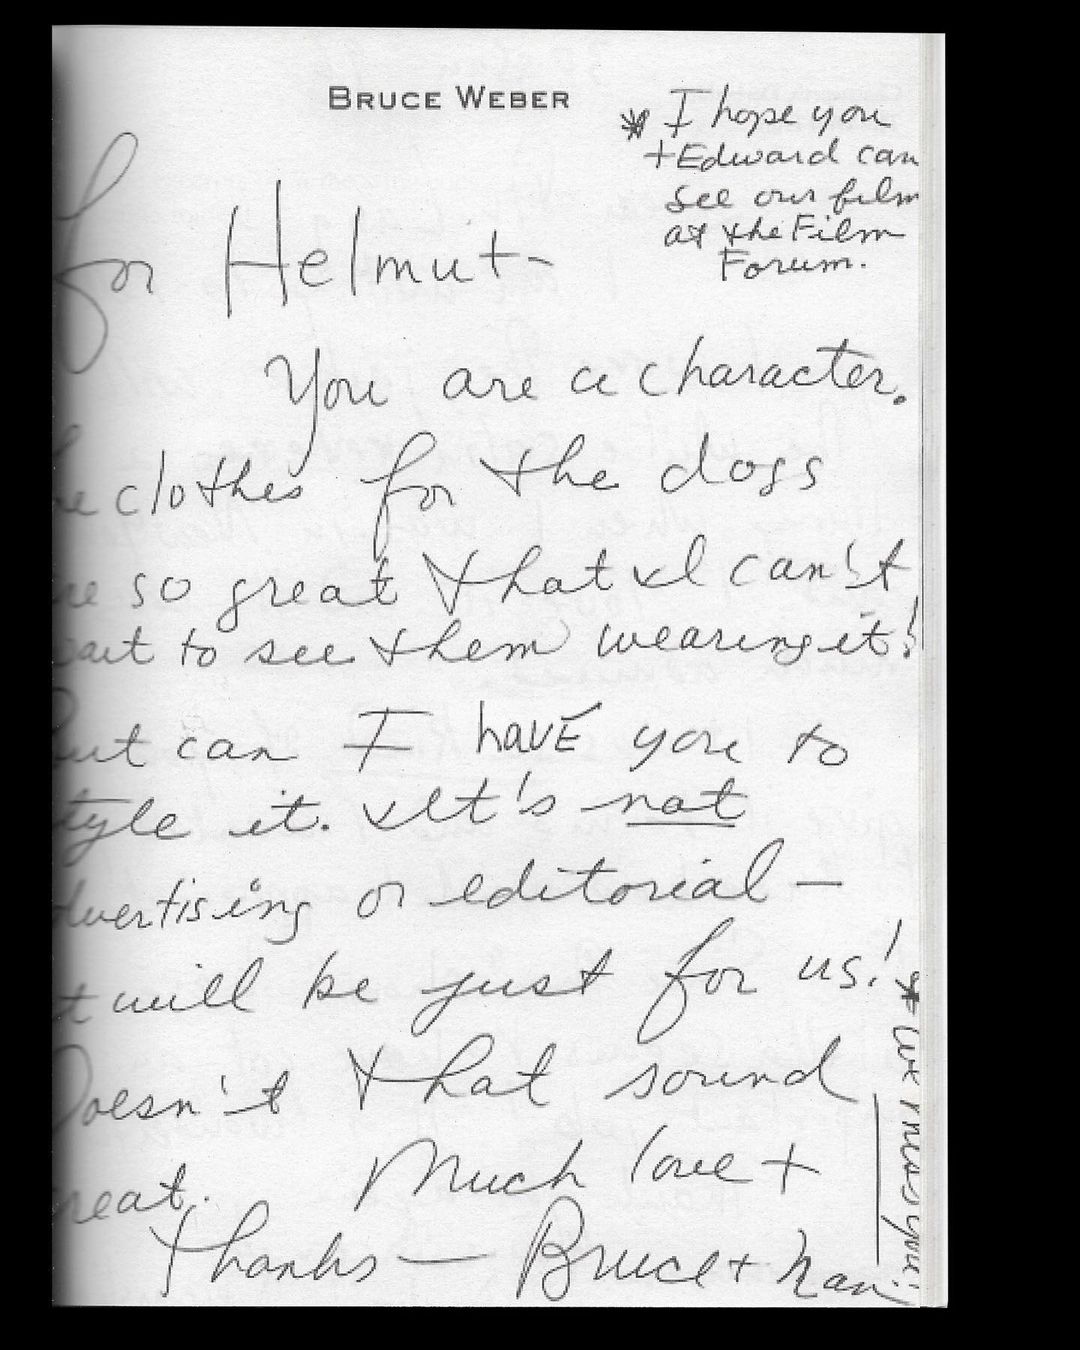 BRUCE WEBER
* I hope you
+ Edward can
see our film
at the Film
Forum.
for Helmut-
You are a character.
he clothes for the dogs
re so great that I can't
ait to see them wearing it!
But can I HAVE you to
tyle it. It's not
dvertising or editorial —
t will be just for us!
Doesn't that sound
reat. Much love +
thanks — Bruce + Nan
* we miss you!